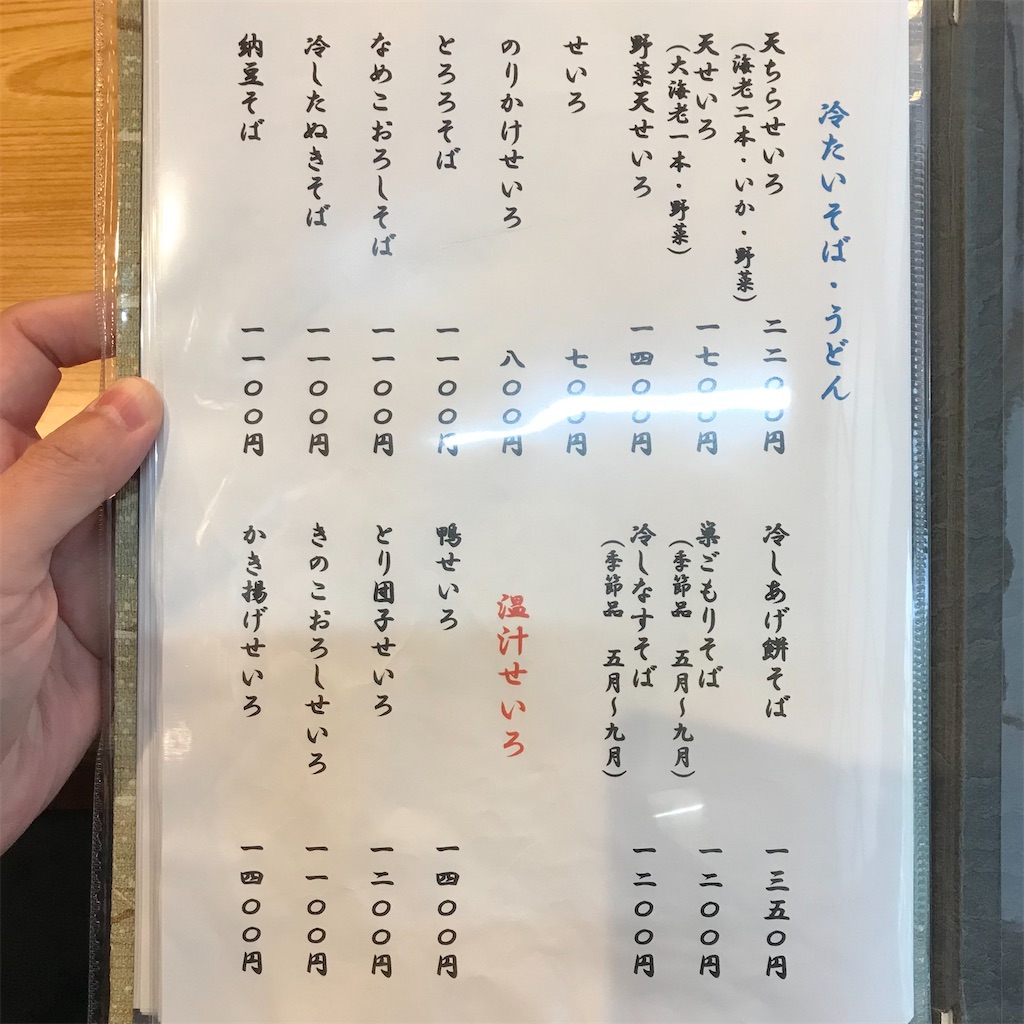 冷たいそば・うどん
天ちらせいろ 二二〇〇円
（海老二本・いか・野菜）
天せいろ 一七〇〇円
（大海老一本・野菜）
野菜天せいろ 一四〇〇円
せいろ 七〇〇円
のりかけせいろ 八〇〇円
とろろそば 一一〇〇円
なめこおろしそば 一一〇〇円
冷したぬきそば 一一〇〇円
納豆そば 一一〇〇円
冷しあげ餅そば 一三五〇円
巣ごもりそば 一二〇〇円
（季節品 五月〜九月）
冷しなすそば 一二〇〇円
（季節品 五月〜九月）
温汁せいろ
鴨せいろ 一四〇〇円
とり団子せいろ 一二〇〇円
きのこおろしせいろ 一一〇〇円
かき揚げせいろ 一四〇〇円